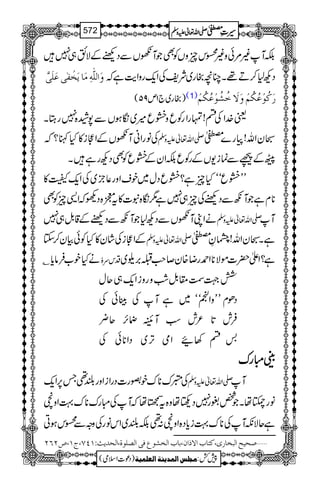 سیرتِ مصطفیٰ صلی اللہ تعالیٰ علیہ وسلم 572
بلکہ آپ غیر مرئی وغیر محسوس چیزوں کو بھی جو آنکھوں سے دیکھنے کے لائق ہی نہیں ہیں
دیکھ لیا کرتے تھے۔ چنانچہ بخاری شریف کی ایک روایت ہے کہ وَاللّٰهِ مَا يَخْفٰى عَلَىَّ
رُكُوْعُكُمْ وَلَا خُشُوْعُكُمْ (1) (بخاری ج۱ ص ۵۹)
یعنی خدا کی قسم! تمہارا رکوع و خشوع میری نگاہوں سے پوشیدہ نہیں رہتا۔
سبحان اللہ! پیارے مصطفیٰ صلی اللہ تعالیٰ علیہ وسلم کی نورانی آنکھوں کے اعجاز کا کیا کہنا؟ کہ
پیٹھ کے پیچھے سے نمازیوں کے رکوع بلکہ ان کے خشوع کو بھی دیکھ رہے ہیں۔
”خشوع“ کیا چیز ہے؟ خشوع دل میں خوف اور عاجزی کی ایک کیفیت کا
نام ہے جو آنکھ سے دیکھنے کی چیز ہی نہیں ہے مگر نگاہ نبوت کا یہ معجزہ دیکھو کہ ایسی چیز کو بھی
آپ صلی اللہ تعالیٰ علیہ وسلم نے اپنی آنکھوں سے دیکھ لیا جو آنکھ سے دیکھنے کے قابل ہی نہیں
ہے۔ سبحان اللہ! چشمانِ مصطفیٰ صلی اللہ تعالیٰ علیہ وسلم کے اعجاز کی شان کا کیا کوئی بیان کر سکتا
ہے؟ اعلیٰ حضرت مولانا احمد رضا خان صاحب قبلہ بریلوی قدس سرہ نے کیا خوب فرمایا۔
شش جہت سمت مقابل شب و روز ایک ہی حال
دھوم ”وَالنَّجْم“ میں ہے آپ کی بینائی کی
فرش تا عرش سب آئینہ ضمائر حاضر
بس قسم کھائیے امی تری دانائی کی
بینی مبارک
آپ صلی اللہ تعالیٰ علیہ وسلم کی متبرک ناک خوبصورت دراز اور بلند تھی جس پر ایک
نور چمکتا تھا۔ جو شخص بغور نہیں دیکھتا تھا وہ یہ سمجھتا تھا کہ آپ کی مبارک ناک بہت اونچی
ہے حالانکہ آپ کی ناک بہت زیادہ اونچی نہ تھی بلکہ بلندی اس نور کی وجہ سے محسوس ہوتی
1……صحیح البخاری، کتاب الاذان، باب الخشوع فی الصلوۃ، الحدیث: ۷۴۱، ج۱، ص۲۶۲
پیش کش: مجلس المدینۃ العلمیۃ (دعوت اسلامی)